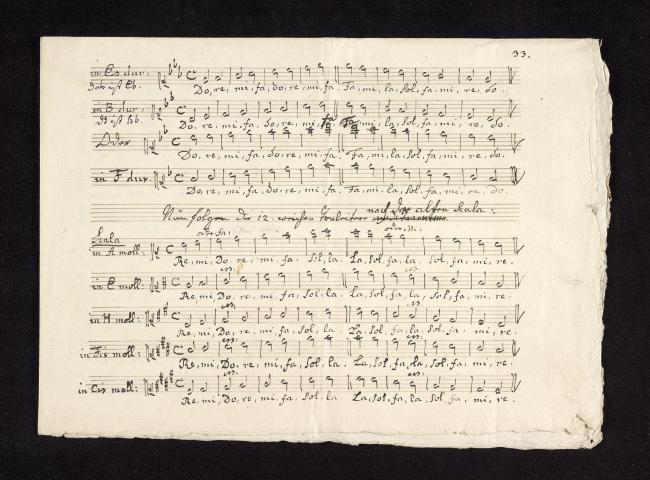 33.
in Es dur.
Das ist Eb.
Do, re, mi, fa, do, re, mi, fa. Fa, mi, la, sol, fa, mi, re, do.
in B dur,
Do, re, mi, fa, do, re, mi, fa. Fa, mi, la, sol, fa, mi, re, do.
Oder
Do, re, mi, fa, do, re, mi, fa. Fa, mi, la, sol, fa, mi, re, do.
in F dur.
Do, re, mi, fa, do, re, mi, fa. Fa, mi, la, sol, fa, mi, re, do.
Nun folgen die 12. weichen Tonleitern nach der alten Skala:
Scala
in A moll:
Re, mi, Do, re, mi, fa, sol, la. La, sol, fa, la, sol, fa, mi, re.
in E moll:
Re, mi, Do, re, mi, fa, sol, la. La, sol, fa, la, sol, fa, mi, re.
in H moll:
Re, mi, Do, re, mi, fa, sol, la. La, sol, fa, la, sol, fa, mi, re.
in Fis moll:
Re, mi, Do, re, mi, fa, sol, la. La, sol, fa, la, sol, fa, mi, re.
in Cis moll:
Re, mi, Do, re, mi, fa, sol, la. La, sol, fa, la, sol, fa, mi, re.